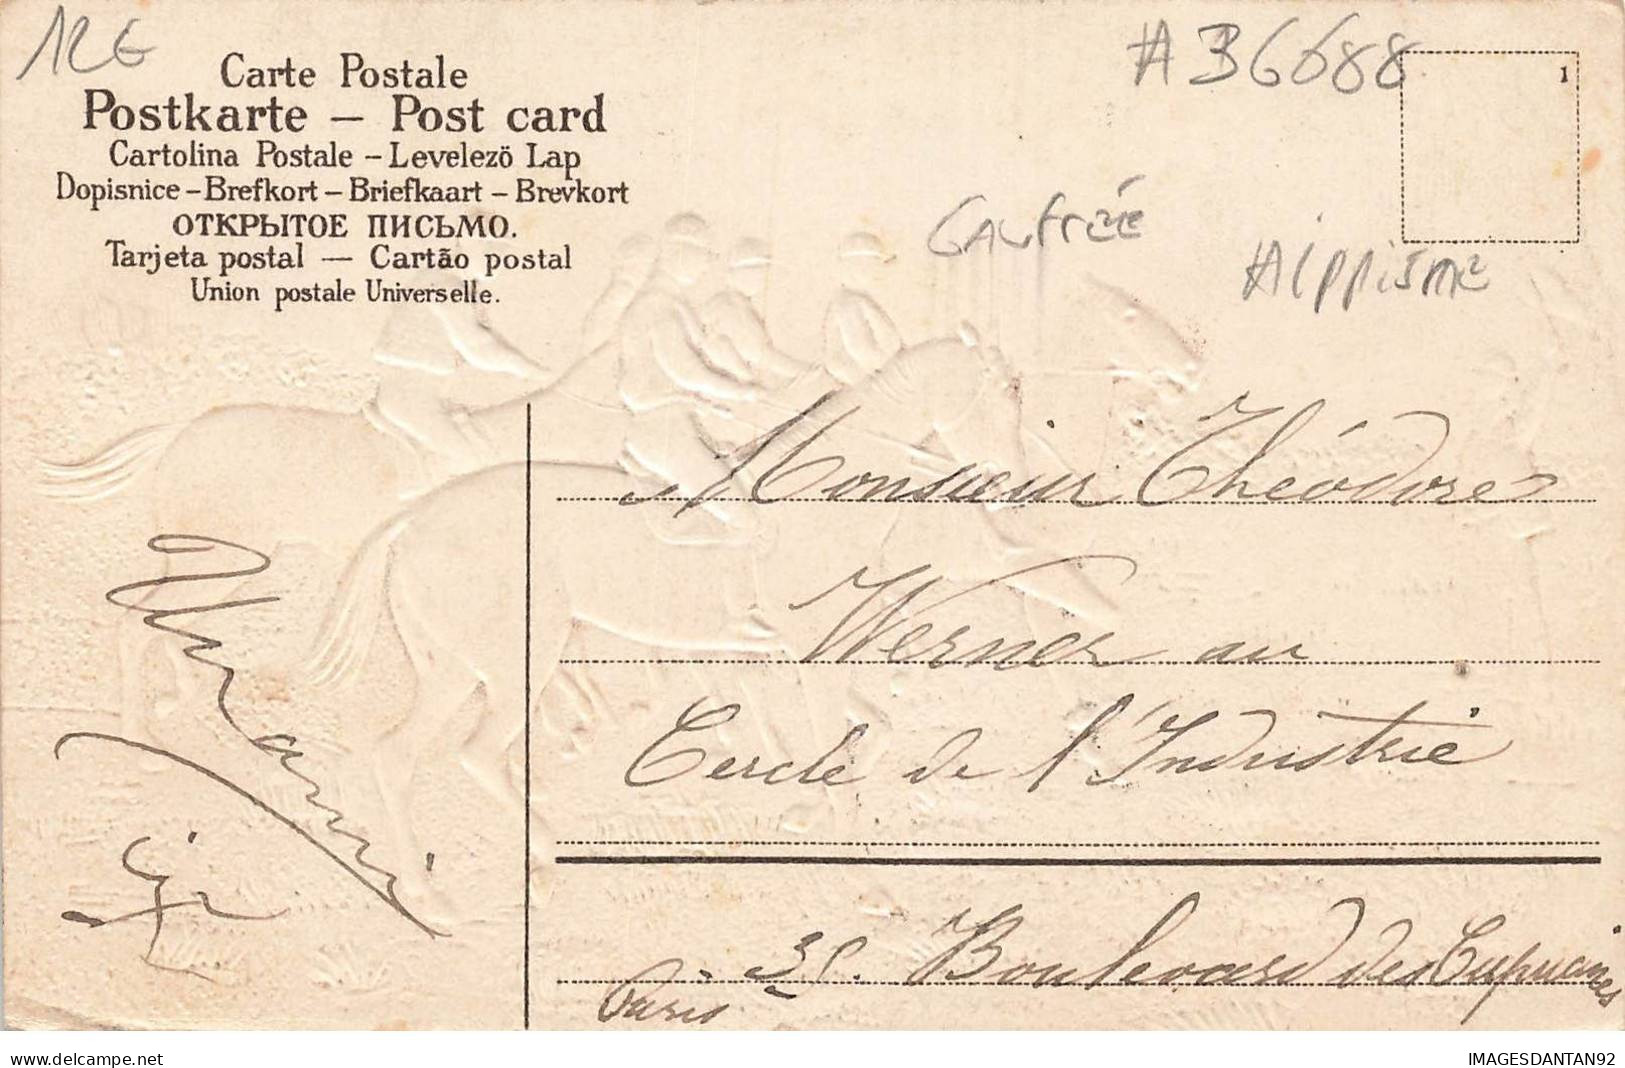 12€
#36688
Carte Postale
Postkarte — Post card
Cartolina Postale – Levelezö Lap
Dopisnice – Brefkort – Briefkaart – Brevkort
ОТКРЫТОЕ ПИСЬМО.
Tarjeta postal — Cartão postal
Union postale Universelle.
1
GAUFRÉE
HIPPISME
Monsieur Théodore
Werner au
Cercle de l'Industrie
35. Boulevard des Capucines
Paris
delcampe.net
IMAGESDANTAN92